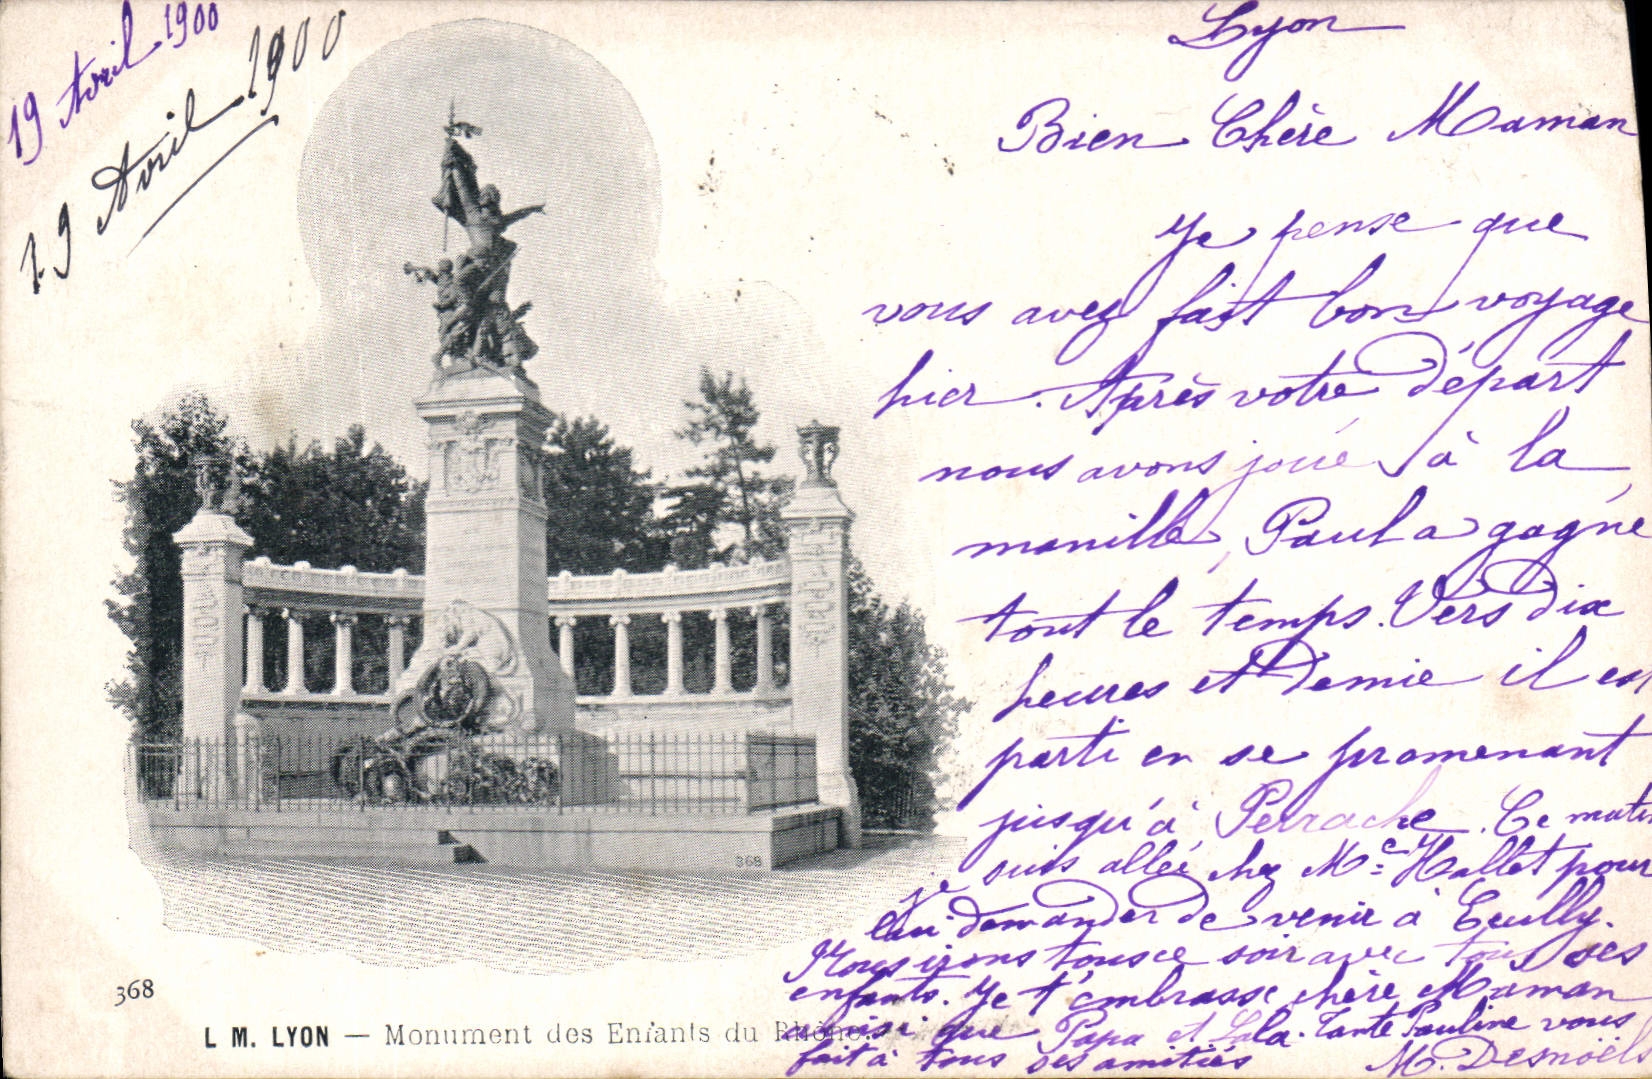 19 Avril 1900
19 Avril 1900
Lyon
Bien Chère Maman
Je pense que
vous avez fait bon voyage
hier. Après votre départ
nous avons joué à la
manille, Paul a gagné
tout le temps. Vers dix
heures et demie il est
parti en se promenant
jusqu'à Perrache. Ce matin
Je suis allée chez Me Hallet pour
lui demander de venir à Ecully.
Nous irons tous ce soir avec tous ses
enfants. Je t'embrasse chère Maman
ainsi que Papa et Lala. Tante Pauline vous
fait à tous ses amitiés M. Desnoëls
368
368
L M. LYON — Monument des Enfants du Rhône.